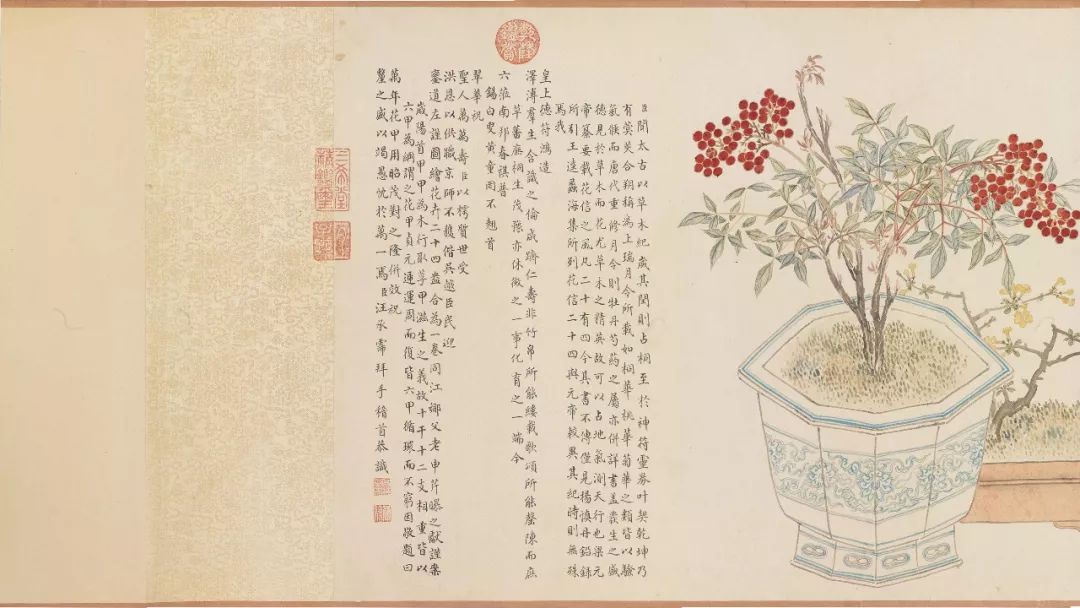 臣聞太古以草木紀歲其閏則占桐至於神符靈券叶契乾坤乃
有蓂莢合朔稱為上瑞月令所載如桐華桃華菊華之類皆以驗
氣候而唐代重修月令則牡丹芍藥之屬亦併詳書蓋叢生之盛
德見於草木而花尤草木之精英故可以占地氣測天行也梁元
帝纂要載花信之風凡二十有四今其書不傳僅見楊慎丹鉛錄
所引王逵蠡海集所列花信二十四與元帝較異其紀時則無殊
焉我
皇上德符鴻造
澤溥羣生含識之倫咸躋仁壽非竹帛所能縷載歌頌所能罄陳而庶
草蕃廡桐生茂豫亦休徵之一事化育之一端今
六蒞南邦春祺普
錫白叟黃童罔不翹首
翠華祝
聖人萬萬壽臣以樗質世受
洪恩以供職京師不獲偕吳越臣民迎
鑾道左謹圖繪花卉二十四盎合為一卷同江鄉父老申芹曝之獻謹案
歲陽首甲甲為木行取孚甲滋生之義故十干十二支相重皆以
六甲為綱謂之花甲貞元運周而復皆六甲循環而不窮因敬題曰
萬年花甲用昭茂對之隆併效祝
釐之盛以竭愚忱於萬一焉臣汪承霈拜手稽首恭識
乾隆鑑賞
三希堂精鑑璽
宜子孫